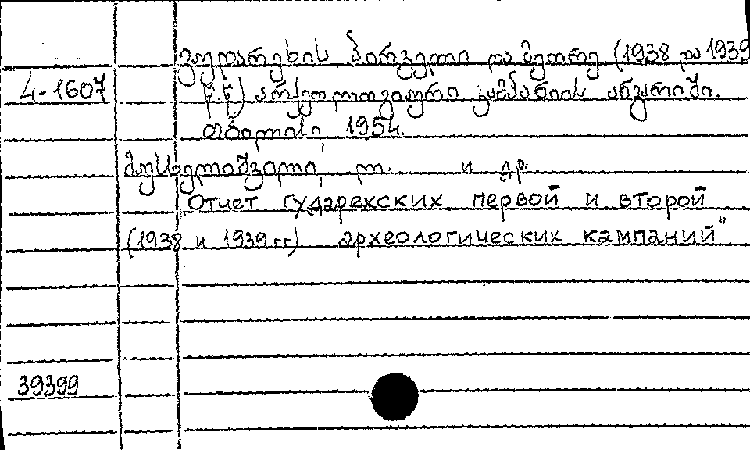 გუდარეხის პირველი და მეორე (1938 და 1939
4-1607 წ.წ.) არქეოლოგიური კამპანიის ანგარიში.
თბილისი, 1954.
მუსხელიშვილი, ლ. и др.
Отчет гударехских первой и второй
(1938 и 1939 гг) археологических кампаний"
39399